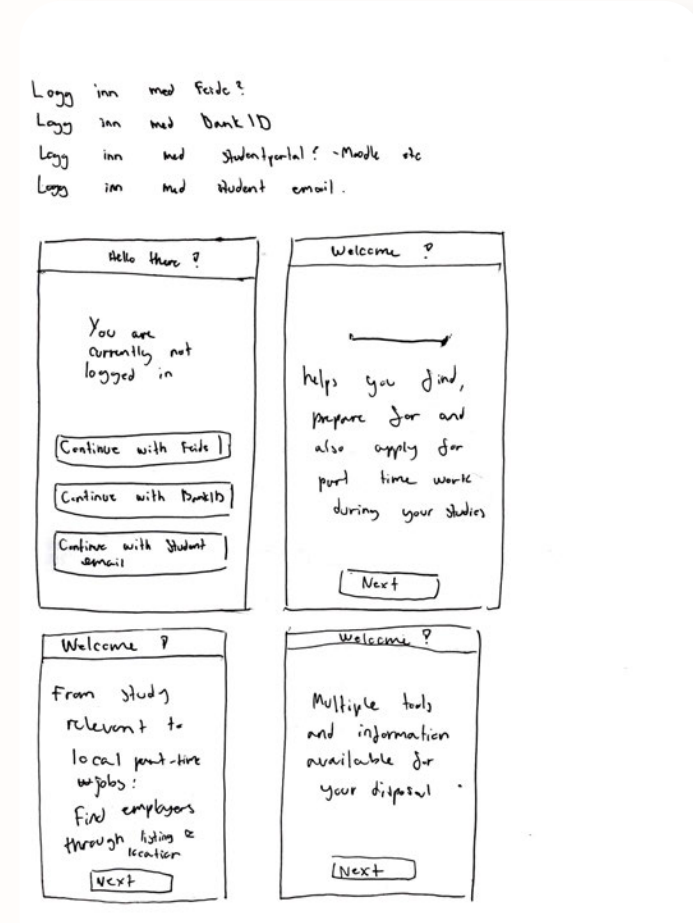 Logg inn med Feide?
Logg inn med Bank ID
Logg inn med Studentportal? - Moodle etc
Logg inn med student email.
Hello there?
You are
currently not
logged in
Continue with Feide
Continue with BankID
Continue with Student
email
Welcome?
helps you find,
prepare for and
also apply for
part time work
during your studies
Next
Welcome?
From study
relevant to
local part-time
jobs:
Find employers
through listing &
location
Next
Welcome?
Multiple tools
and information
available for
your disposal.
Next